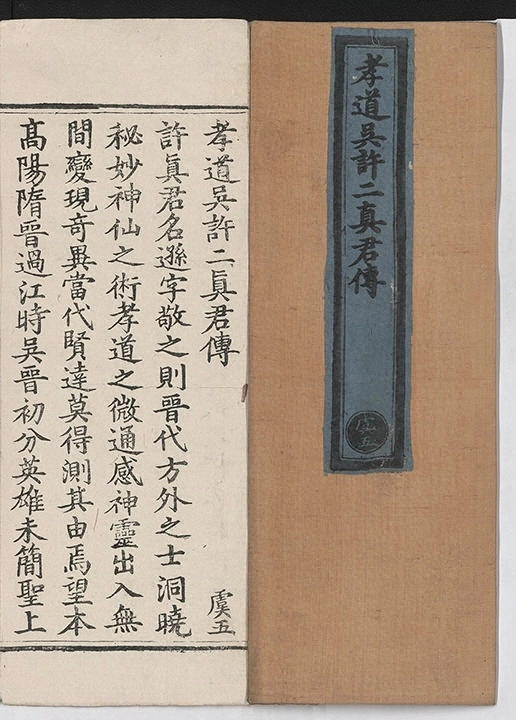 孝道吳許二真君傳
虞五
孝道吳許二眞君傳
虞五
許眞君名遜字敬之則晉代方外之士洞曉
秘妙神仙之術孝道之微通感神靈出入無
間變現奇異當代賢達莫得測其由焉望本
髙陽隋晉過江時吳晉初分英雄未簡聖上